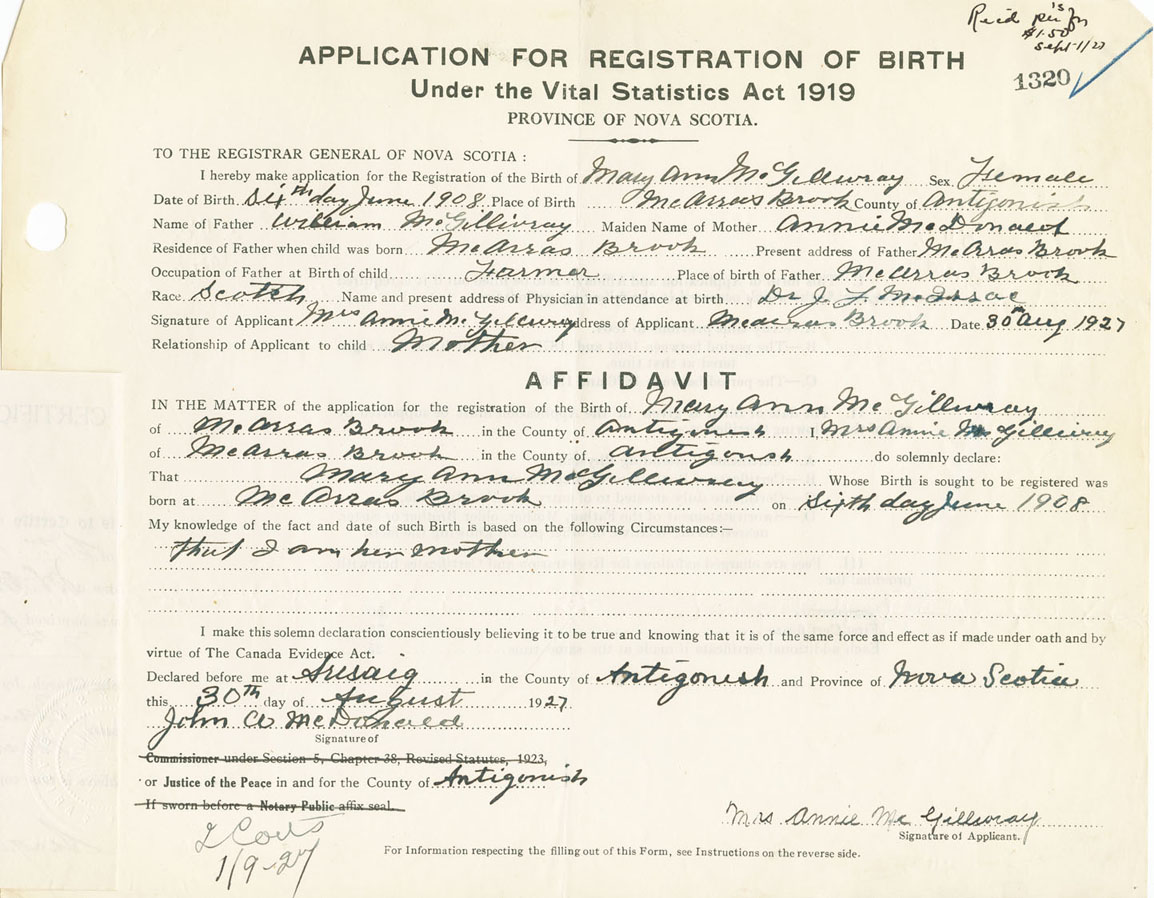 Recd
$1.50
Sept 1/27
1320
APPLICATION FOR REGISTRATION OF BIRTH
Under the Vital Statistics Act 1919
PROVINCE OF NOVA SCOTIA.
TO THE REGISTRAR GENERAL OF NOVA SCOTIA :
I hereby make application for the Registration of the Birth of Mary Ann McGillivray Sex Female
Date of Birth Sixth day June 1908 Place of Birth McArras Brook County of Antigonish
Name of Father William McGillivray Maiden Name of Mother Annie McDonald
Residence of Father when child was born McArras Brook Present address of Father McArras Brook
Occupation of Father at Birth of child Farmer Place of birth of Father McArras Brook
Race Scotch Name and present address of Physician in attendance at birth Dr J. F. McIsaac
Signature of Applicant Mrs Annie McGillivray Address of Applicant McArras Brook Date 30th Aug 1927
Relationship of Applicant to child Mother
AFFIDAVIT
IN THE MATTER of the application for the registration of the Birth of Mary Ann McGillivray
of McArras Brook in the County of Antigonish I, Mrs Annie McGillivray
of McArras Brook in the County of Antigonish do solemnly declare:
That Mary Ann McGillivray Whose Birth is sought to be registered was
born at McArras Brook on Sixth day June 1908
My knowledge of the fact and date of such Birth is based on the following Circumstances:—
that I am her mother
I make this solemn declaration conscientiously believing it to be true and knowing that it is of the same force and effect as if made under oath and by
virtue of The Canada Evidence Act.
Declared before me at Arisaig in the County of Antigonish and Province of Nova Scotia
this 30th day of August 1927
John A McDonald
Signature of
Commissioner under Section 5, Chapter 38, Revised Statutes, 1923,
or Justice of the Peace in and for the County of Antigonish
If sworn before a Notary Public affix seal.
Mrs Annie McGillivray
Signature of Applicant.
1/9-27
For Information respecting the filling out of this Form, see Instructions on the reverse side.